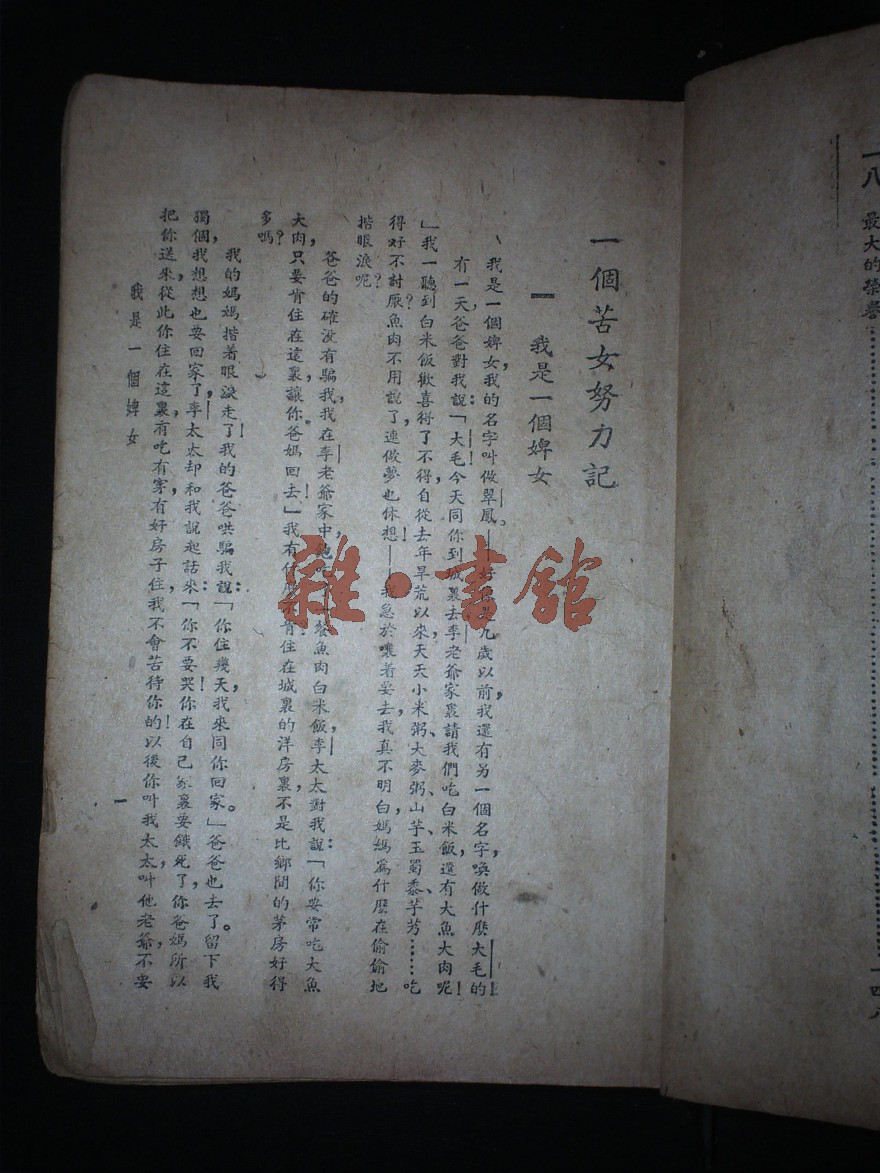 一八 最大的榮譽……………………一四八
一個苦女努力記
一 我是一個婢女
我是一個婢女,我的名字叫做翠鳳。——好像是九歲以前,我還有另一個名字,喚做什麼大毛的!
有一天,爸爸對我說:「大毛!今天同你到城裏去,李老爺家裏請我們吃白米飯,還有大魚大肉呢!
」我一聽到白米飯,歡喜得了不得,自從去年旱荒以來,天天小米粥、大麥粥、山芋、玉蜀黍、芋艿……吃
得好不討厭?魚肉不用說了,連做夢也休想!——我急於嚷着要去,我真不明白,媽媽爲什麼在偷偷地
揩眼淚呢?
爸爸的確沒有騙我,我在李老爺家中,飽吃了一餐魚肉白米飯,李太太對我說:「你要常吃大魚
大肉,只要肯住在這裏,讓你爸媽回去。」我有什麼不肯!住在城裏的洋房裏,不是比鄉間的茅房好得
多嗎?
我的媽媽揩着眼淚走了!我的爸爸哄騙我說:「你住幾天,我來同你回家。」爸爸也去了。留下我
獨個,我想想也要回家了,李太太却和我說起話來:「你不要哭!你在自己家裏要餓死了,你爸媽所以
把你送來,從此你住在這裏,有吃有穿,有好房子住,我不會苦待你的!以後你叫我太太,叫他老爺,不要
我是一個婢女
一
雜·書館